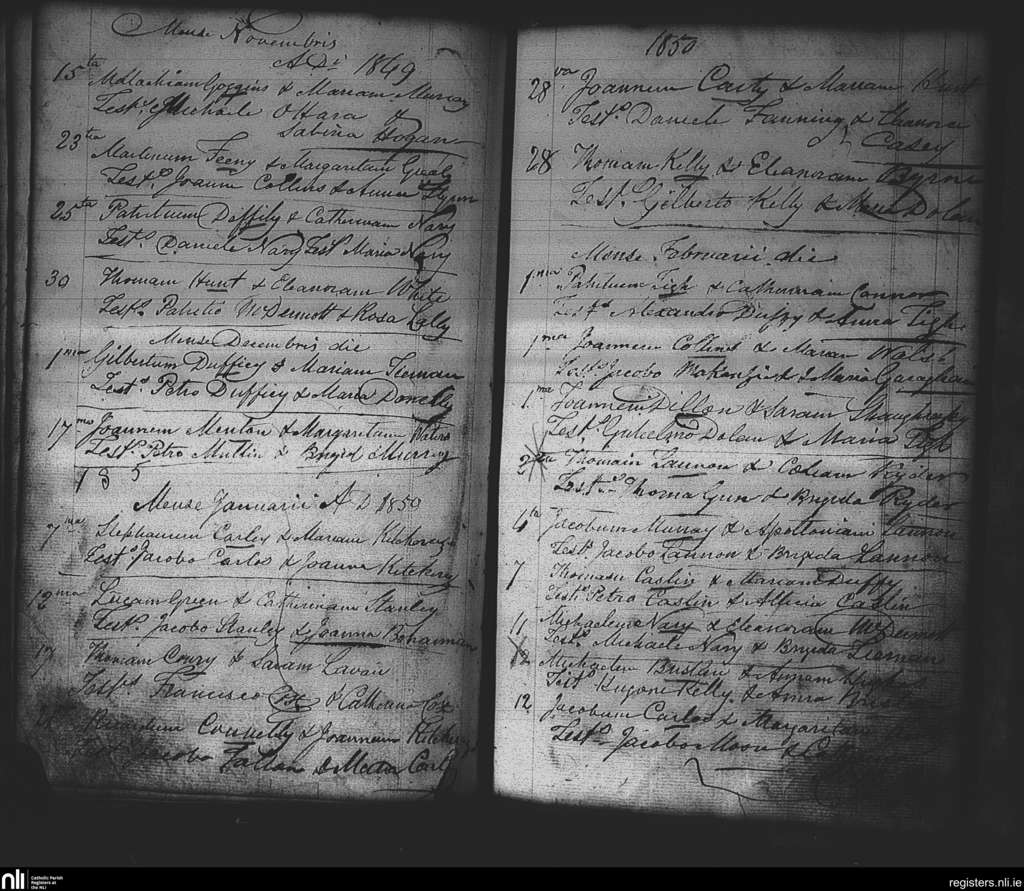 Mense Novembris
A Di 1849
15ta Malachiam Goggins & Mariam Murray
Test. Michaele O Hara &
Sabina Hogan
23tia Martinum Feeny & Margaritam Grealy
Test. Joanne Collins & Anna Flynn
25ta Patritium Diffily & Catherinam Nary
Test. Daniele Nary Test Maria Nary
30 Thomam Hunt & Eleanoram White
Test. Patritio McDermott & Rosa Lally
Mense Decembris die
1ma Gilbertum Duffiey & Mariam Tiernan
Test. Petro Duffiey & Maria Donelly
17ma Joannem Menton & Margaritam Waters
Test. Petro Mullin & Brigid Murray
1 8 5
Mense Januarii A D 1850
7ma Stephanum Carlos & Mariam
Test. Jacobo Carlos & Joanna
12ma Lucam Green & Catherinam Stanley
Test. Jacobo Stanley & Joanna Bohannan
17 Thomam Conry & Saram Lavin
Test. Francisco Fox & Fox
Connelly & Joannam
Jacobo Fallon &
1850
28va Joannem Casty & Mariam Hunt
Test. Daniele Fanning & Eleanora
Casey
28 Thomam Kelly & Eleanoram Byrne
Test. Gilberto Kelly & Maria Dolan
Mense Februarii die
1ma Patritium Tigh & Catherinam Connor
Test. Alexandro Duffy & Anna Tighe
1ma Joannem Collins & Mariam Walsh
Test. Jacobo & Maria Garaghan
1ma Joannem Dillon & Saram
Test. Gulielmo Dolan & Maria
2da Thomam Lannon & Ryder
Test. Thoma & Brigida Ryder
4ta Jacobum Murray & Apolloniam Lannon
Test. Jacobo Lannon & Brigida Lannon
7 Thomam Caslin & Mariam Duffy
Test. Petro Caslin & Alicia Caslin
11 Michaelem Nary & Eleanoram McDermott
Test. Michaele Nary & Brigida Tiernan
12 Michaelem & Annam
Test. Hugone Kelly & Anna
12 Jacobum Carlos & Margaritam
Test. Jacobo Moon &
nli
Catholic Parish
Registers at
the NLI
registers.nli.ie